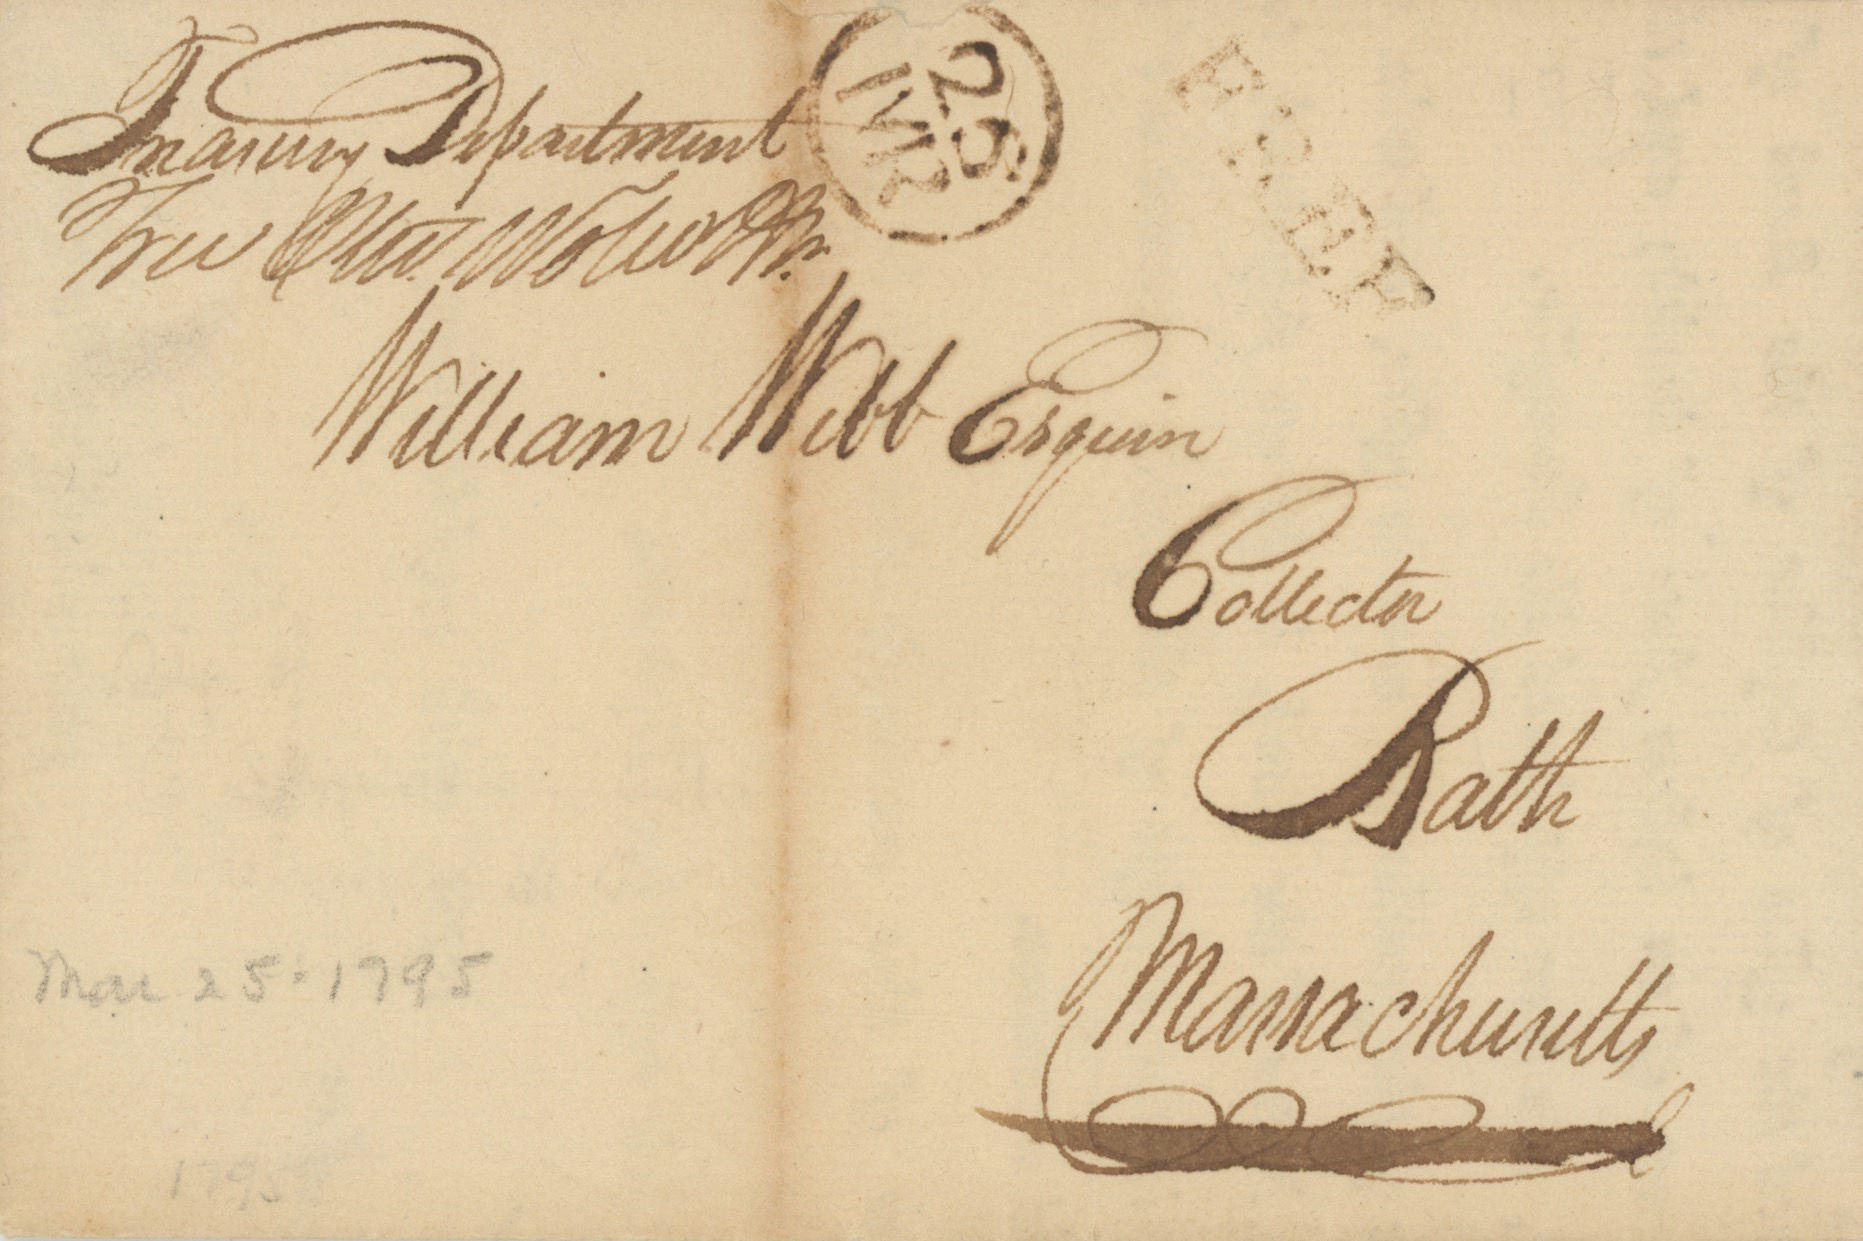 Treasury Department
Free Oliv. Wolcott Jr.
25
MR
FREE
William Webb Esquire
Collector
Bath
Massachusetts
Mar 25 - 1795
1795